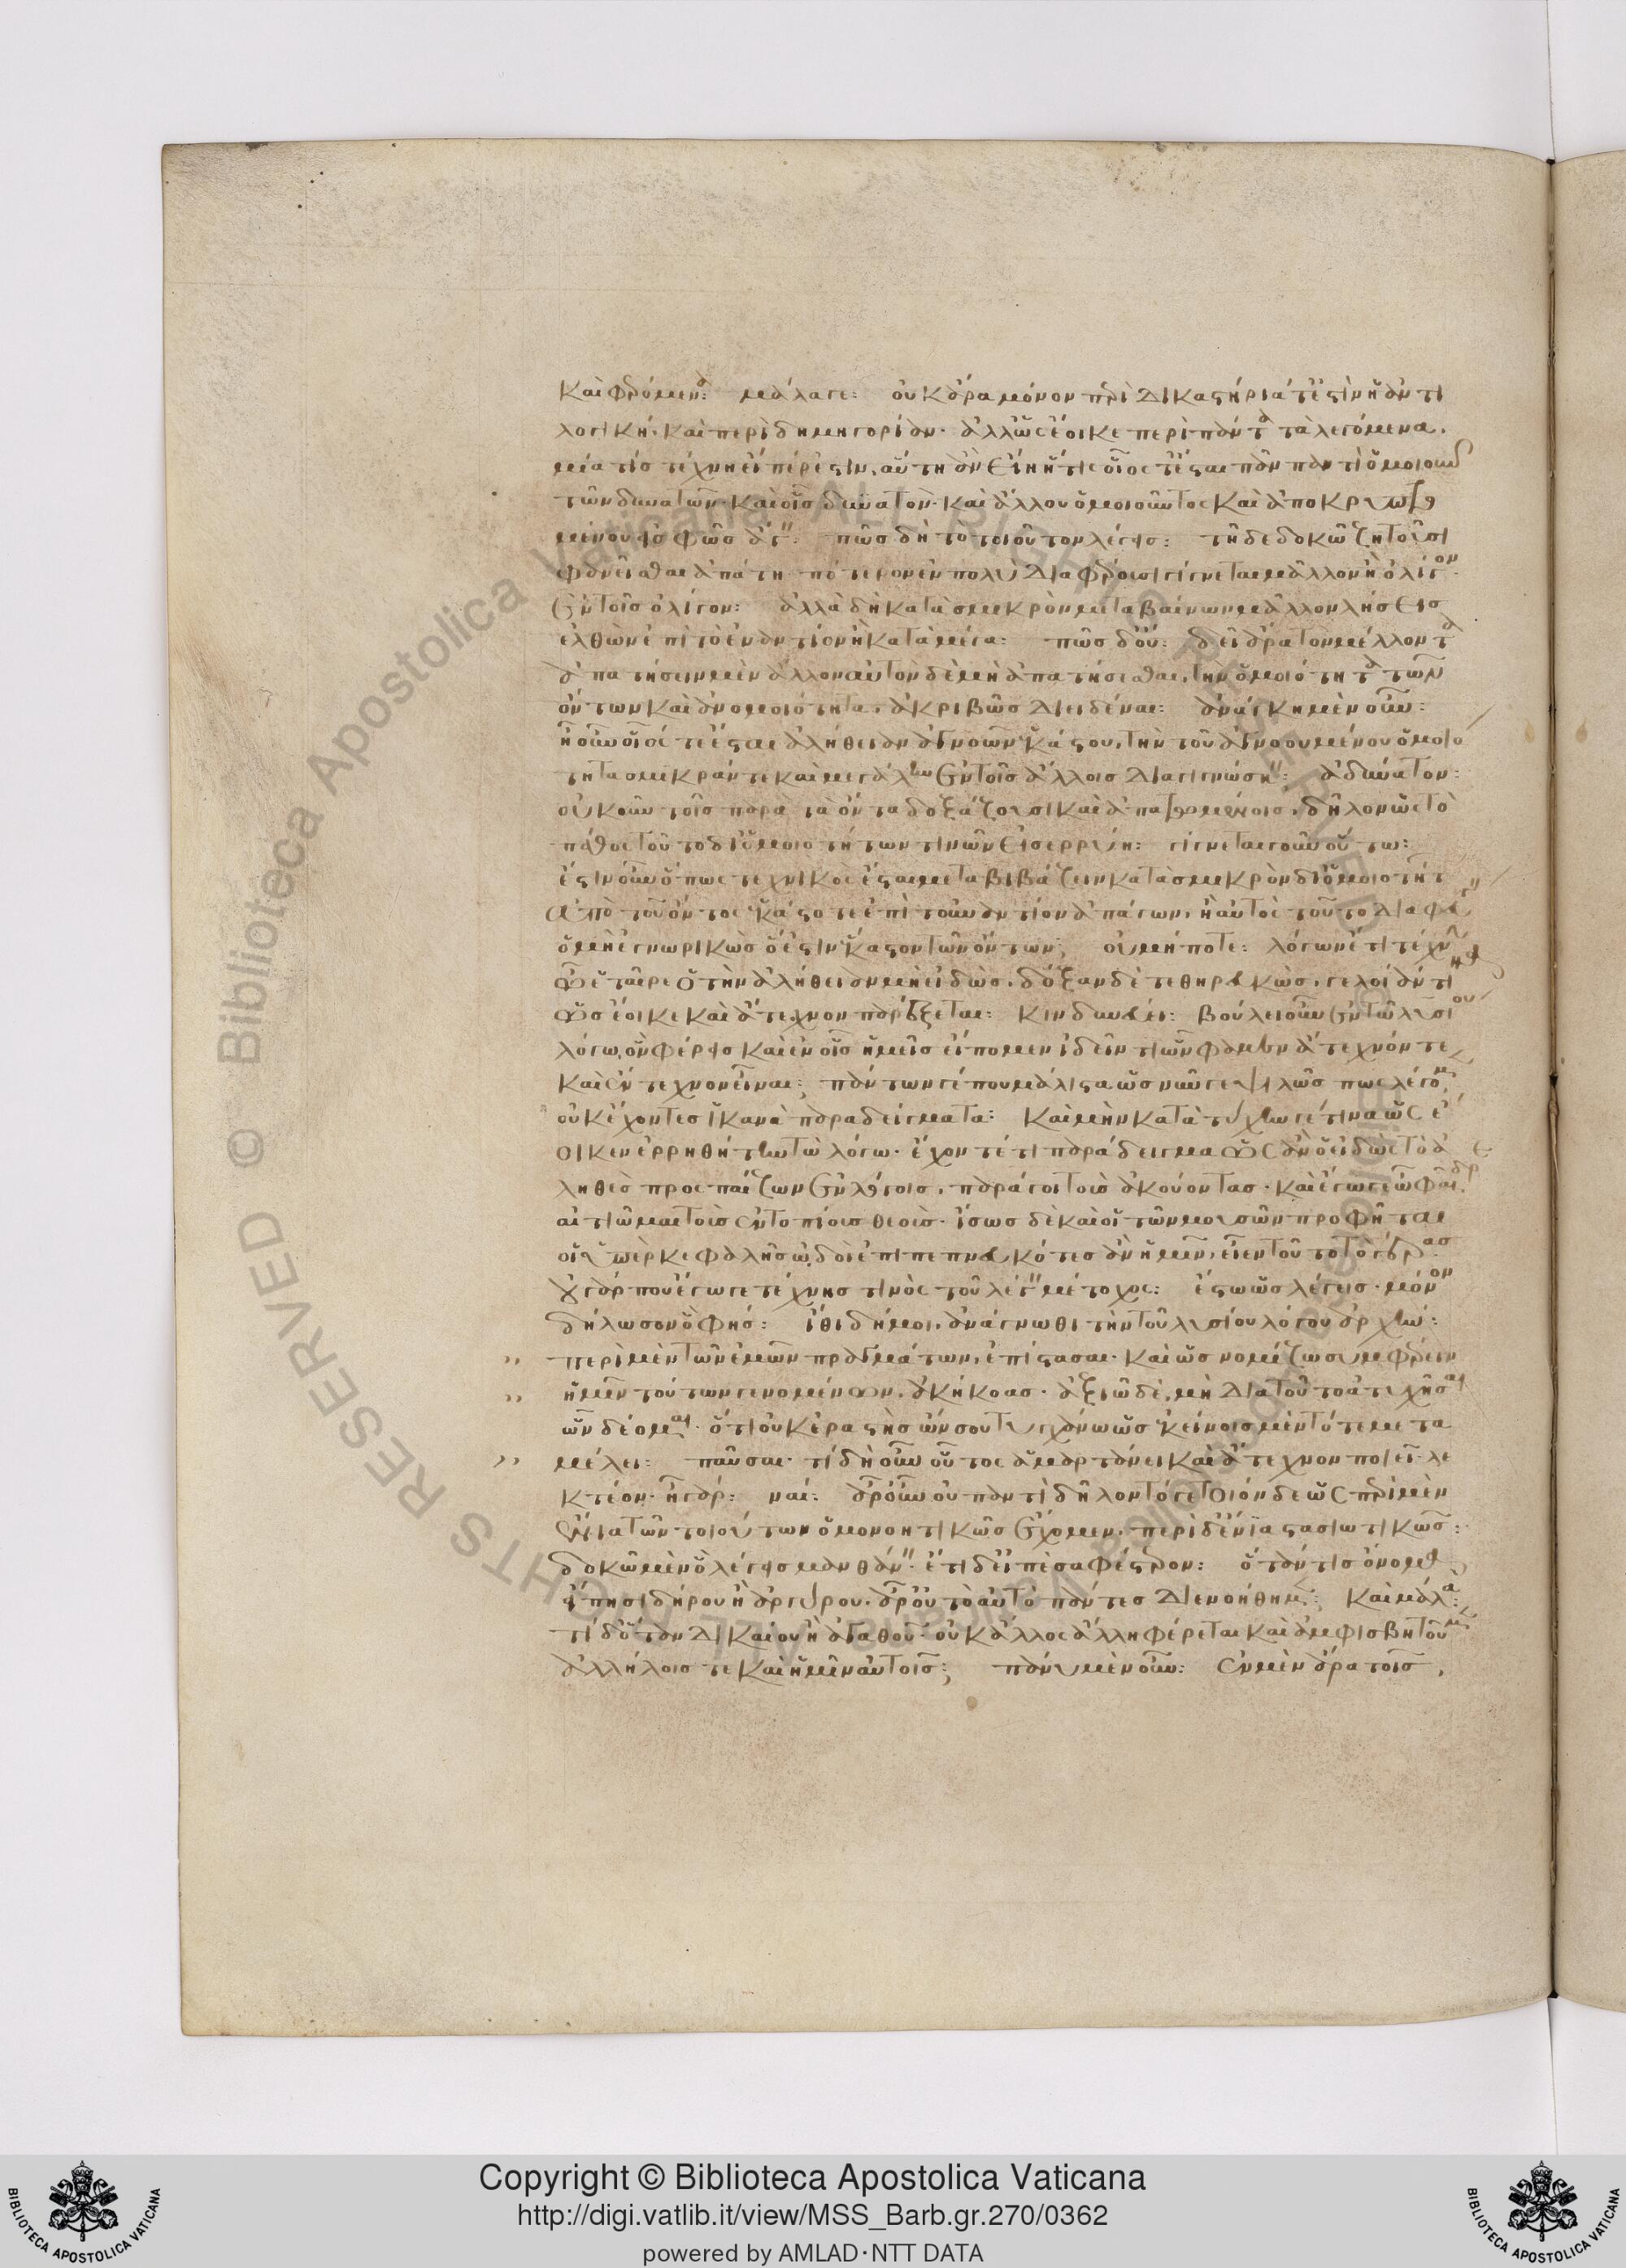 καὶ φερόμενα: μάλα γε: οὐκ ἄρα μόνον περὶ δικαστήριά τέ ἐστιν ἡ ἀντι
λογικὴ· καὶ περὶ δημηγορίαν· ἀλλ' ὡς ἔοικε περὶ πάντα τὰ λεγόμενα.
μία τίς τέχνη εἴπέρ ἐστιν, αὕτη ἂν εἴη ᾗ τις οἷός τέ ἔσται πᾶν παντὶ ὁμοιοῦν
τῶν δυνατῶν· καὶ οἷς δυνατόν· καὶ ἄλλου ὁμοιοῦντος καὶ ἀποκρυπτο
μένου εἰς φῶς ἄγειν: πῶς δὴ τὸ τοιοῦτον λέγεις: τῇδε δοκῶ ζητοῦσι
φανεῖσθαι ἀπάτη πότερον ἐν πολὺ διαφέρουσι γίγνεται μᾶλλον ἢ ὀλίγον·
ἐν τοῖς ὀλίγον: ἀλλὰ δὴ κατὰ σμικρὸν μεταβαίνων μᾶλλον λήσεις
ἐλθὼν ἐπὶ τὸ ἐναντίον ἢ κατὰ μέγα: πῶς δ' οὔ: δεῖ ἄρα τὸν μέλλοντα
ἀπατήσειν μὲν ἄλλον αὐτὸν δὲ μὴ ἀπατήσεσθαι, τὴν ὁμοιότητα τῶν
ὄντων καὶ ἀνομοιότητα, ἀκριβῶς διειδέναι: ἀνάγκη μὲν οὖν:
ἦ οὖν οἷός τε ἔσται ἀλήθειαν ἀγνοῶν ἑκάστου, τὴν τοῦ ἀγνοουμένου ὁμοιό
τητα σμικράν τε καὶ μεγάλην ἐν τοῖς ἄλλοις διαγιγνώσκειν; ἀδύνατον:
οὐκοῦν τοῖς παρὰ τὰ ὄντα δοξάζουσι καὶ ἀπατωμένοις, δῆλον ὡς τὸ
πάθος τοῦτο δι' ὁμοιοτήτων τινῶν εἰσερρύη: γίγνεται γοῦν οὕτω:
ἔστιν οὖν ὅπως τεχνικὸς ἔσται μεταβιβάζειν κατὰ σμικρὸν δι' ὁμοιοτήτων
ἀπὸ τοῦ ὄντος ἑκάστοτε ἐπὶ τοὐναντίον ἀπάγων, ἢ αὐτὸς τοῦτο διαφεύγειν
ὁ μὴ ἐγνωρικὼς ὃ ἔστιν ἕκαστον τῶν ὄντων; οὐ μή ποτε: λόγων ἔτι τέχνην
ὦ ἑταῖρε ὁ τὴν ἀλήθειαν μὴ εἰδὼς, δόξαν δὲ τεθηρευκὼς, γελοίαν τι
ὡς ἔοικε καὶ ἄτεχνον παρέξεται: κινδυνεύει: βούλει οὖν ἐν τῷ λυσίου
λόγῳ, ὃν φέρεις καὶ ἐν οἷς ἡμεῖς εἴπομεν ἰδεῖν τι ὧν φαμὲν ἀτέχνόν τε
καὶ ἔντεχνον εἶναι; πάντων γέ που μάλιστα ὡς νῦν γε ψιλῶς πως λέγομεν
οὐκ ἔχοντες ἱκανὰ παραδείγματα: καὶ μὴν κατὰ τύχην γέ τινα ὡς ἔ
οικεν ἐρρηθήτην τὼ λόγω· ἔχοντέ τι παράδειγμα ὡς ἂν ὁ εἰδὼς τὸ ἀ
ληθὲς προσπαίζων ἐν λόγοις, παράγοι τοὺς ἀκούοντας· καὶ ἔγωγε ὦ φαῖδρε
αἰτιῶμαι τοὺς ἐντοπίους θεούς· ἴσως δὲ καὶ οἱ τῶν μουσῶν προφῆται
οἱ ὑπὲρ κεφαλῆς ᾠδοὶ ἐπιπεπνευκότες ἂν ἡμῖν, εἶεν τοῦτο τὸ γέρας·
οὐ γάρ που ἔγωγε τέχνης τινὸς τοῦ λέγειν μέτοχος: ἔστω ὡς λέγεις· μόνον
δήλωσον ὃ φής: ἴθι δή μοι, ἀνάγνωθι τὴν τοῦ λυσίου λόγου ἀρχήν:
περὶ μὲν τῶν ἐμῶν πραγμάτων, ἐπίστασαι· καὶ ὡς νομίζω συμφέρειν
ἡμῖν τούτων γενομένων, ἀκήκοας· ἀξιῶ δὲ, μὴ διὰ τοῦτο ἀτυχῆσαι
ὧν δέομαι· ὅτι οὐκ ἐραστὴς ὤν σου τυγχάνω ὡς ἐκείνοις μὲν τότε μετα
μέλει: παῦσαι· τί δὴ οὖν οὗτος ἁμαρτάνει καὶ ἄτεχνον ποιεῖ· λε
κτέον· ἦ γάρ: ναί: ἆρ' οὖν οὐ παντὶ δῆλον τό γε τοιόνδε ὡς περὶ μὲν
ἔνια τῶν τοιούτων ὁμονοητικῶς ἔχομεν, περὶ δ' ἔνια στασιωτικῶς:
δοκῶ μὲν ὃ λέγεις μανθάνειν· ἔτι δ' εἰπὲ σαφέστερον: ὅταν τις ὄνομα
εἴπῃ σιδήρου ἢ ἀργύρου, ἆρ' οὐ τὸ αὐτὸ πάντες διενοήθημεν; καὶ μάλα:
τί δ' ὅταν δικαίου ἢ ἀγαθοῦ· οὐκ ἄλλος ἄλλῃ φέρεται καὶ ἀμφισβητοῦμεν
ἀλλήλοις τε καὶ ἡμῖν αὐτοῖς; πάνυ μὲν οὖν: ἐν μὲν ἄρα τοῖς,
© Biblioteca Apostolica Vaticana ALL RIGHTS RESERVED
Copyright © Biblioteca Apostolica Vaticana
http://digi.vatlib.it/view/MSS_Barb.gr.270/0362
powered by AMLAD·NTT DATA
BIBLIOTECA APOSTOLICA VATICANA
BIBLIOTECA APOSTOLICA VATICANA